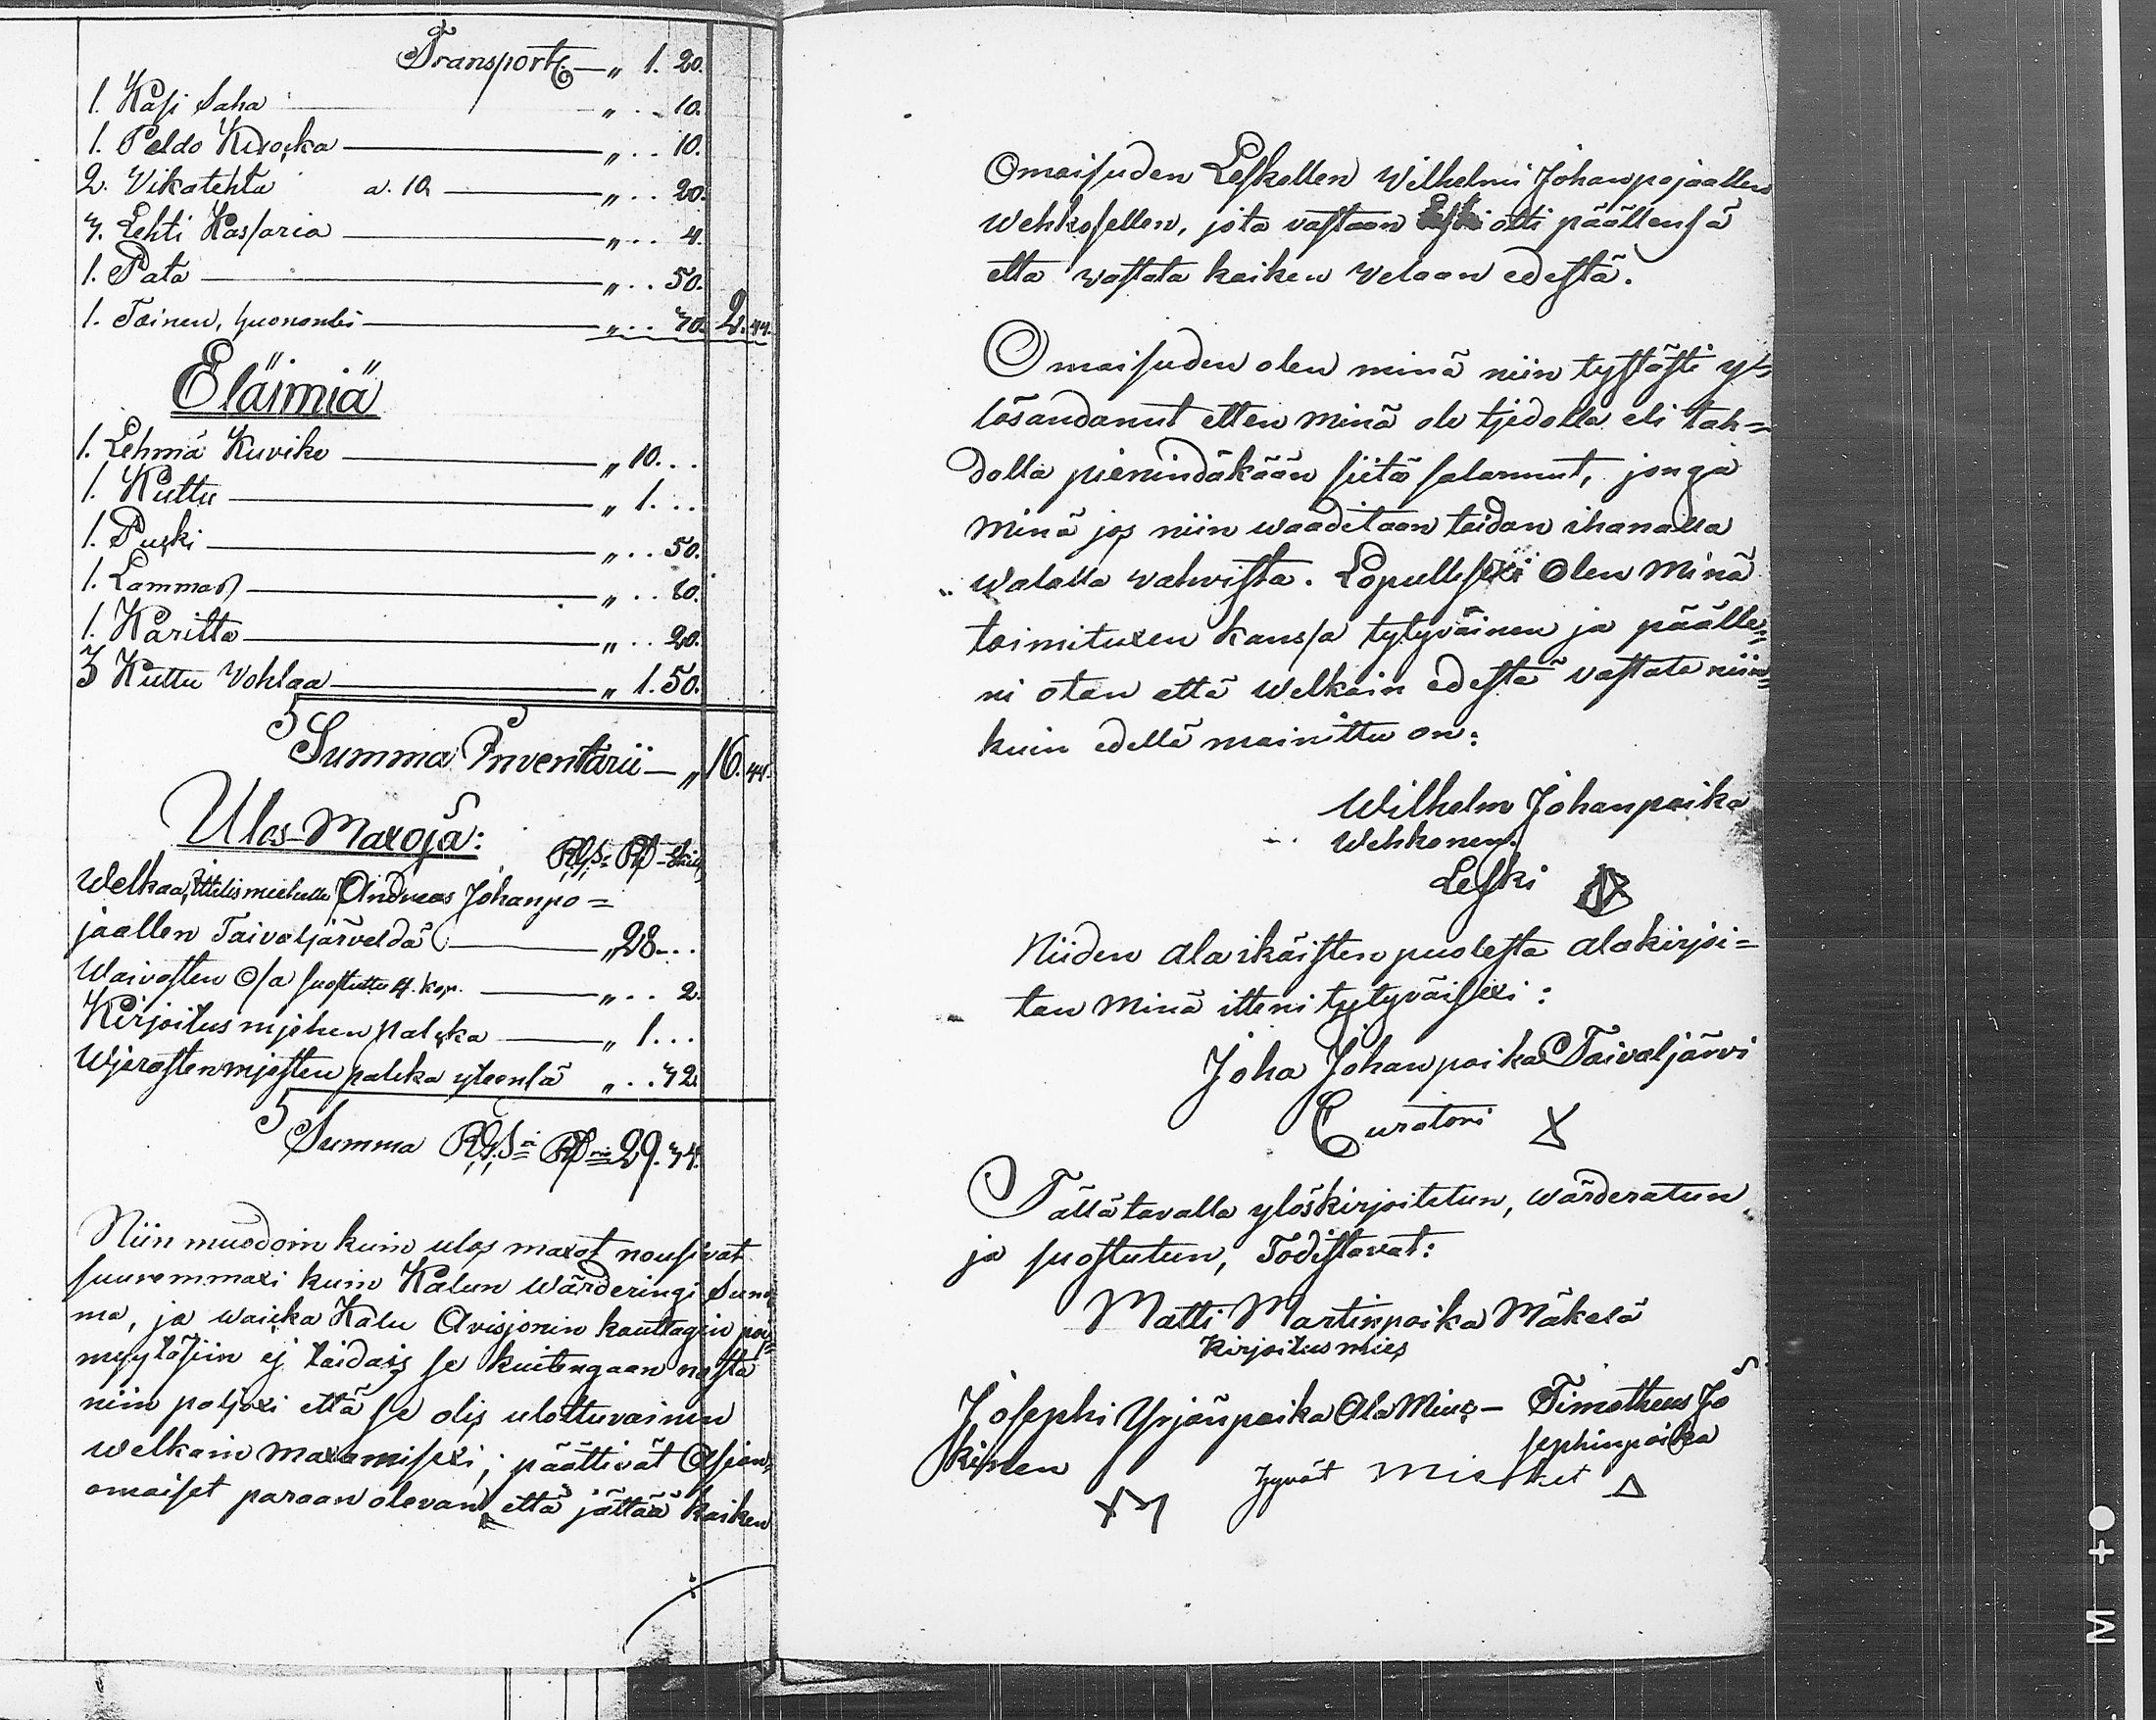 Transport — „ 1. 20.
1. Käsi Saha „ . . 10.
1. Peldo Kuocka „ . . 10.
2. Vikatehta a. 10. „ . . 20.
3. Lehti Kassaria „ . . 4.
1. Pata „ . . 50.
1. Toinen, huonombi „ . . 30. 2. 44.
Eläimiä
1. Lehmä Kuviko „ 10. . .
1. Kuttu „ 1. . .
1. Pucki „ . . 50.
1. Lammas „ . . 80.
1. Karitta „ . . 20.
3 Kuttu Vohlaa „ 1. 50.
Summa Inventarii — „ 16. 44.
Ulos-Maxoja:
Welkaa, Andreas Johanpo=
jaallen Taivaljärveldä „ 28. . .
Waivasten Osa suostuttu 4. kop. „ . . 2.
Kirjoitus mjehen palcka „ 1. . .
Wjerasten mjesten palcka yteensä „ . . 32
Summa 29. 34.
Niin muodoin kuin ulos maxot nousivat
suuremmaxi kuin Kalun Wärderingi Sum=
ma, ja waicka Kalu Avisjonin kauttagin poi=
myytöisin ej taidais se kuitengaan nosta
niin paljoxi että se olis ulottuvainen
welkain maxamisexi; päättivät Asian=
omaiset paraan olevan, että jättää kaiken
Omaisuden Leskellen Wilhelmi Johanpojaallen
Wehkosellen, jota vastaan Leski otti päällensä
etta wastata kaiken Velaan edestä.
Omaisuden olen minä niin tystästi y=
lösandanut etten minä ole tjedolla eli tah=
dolla pienindäkään siitä salannut, jonga
minä jos niin waaditaan taidan ihanalla
Walalla vahvista. Lopullisexi Olen Minä
toimituxen kanssa tytyväinen ja päälle=
ni otan että Welkain edestä vastata niin=
kuin edellä mainittu on:
Wilhelm Johanpoika
Wehkonen.
Leski
Niiden ala ikäisten puolesta alakirjoi=
tan minä itteni tytyväisexi:
Joha Johanpoika Taivaljärvi
Curatori X
Tällätavalla ylöskirjoitetun, wärderatun
ja suostutun, Todistavat:
Matti Martinpoika Mäkelä
Kirjoitus mies
Josephi Yrjänpoika Ala Mius- Timotheus Jo
kinen sephinpoika
hyvät Miehet